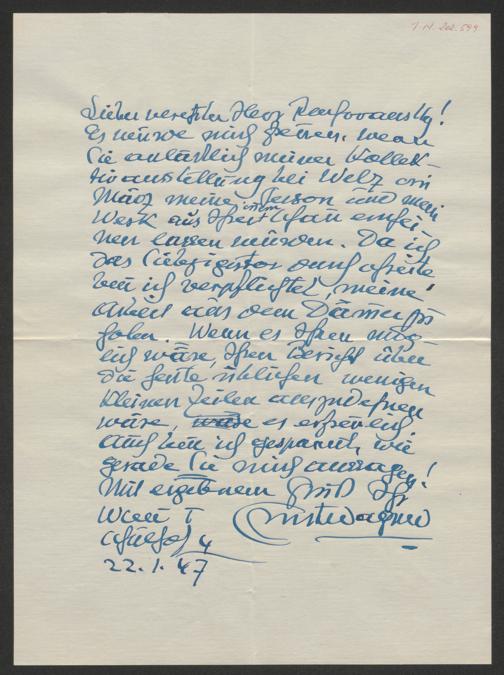 I.N. 202.599
Lieber verehrter Herr
Es würde mich freuen, wenn
Sie anläßlich meiner Kollek-
tivausstellung bei Welz im
März meine Person und mein
Werk aus Ihrem Schau
nen lassen würden. Da ich
das
bin ich verpflichtet, meine
Arbeit aus dem
haben. Wenn es Ihnen mög-
lich wäre, Ihren Bericht über
die heute üblichen wenigen
kleinen Zeilen auszudehnen
wäre, wäre es erfreulich
auch bin ich gespannt, wie
gerade Sie mich aussagen!
Mit ergebenem Gruß Ihr
Wien I Wagner
4
22.1.47